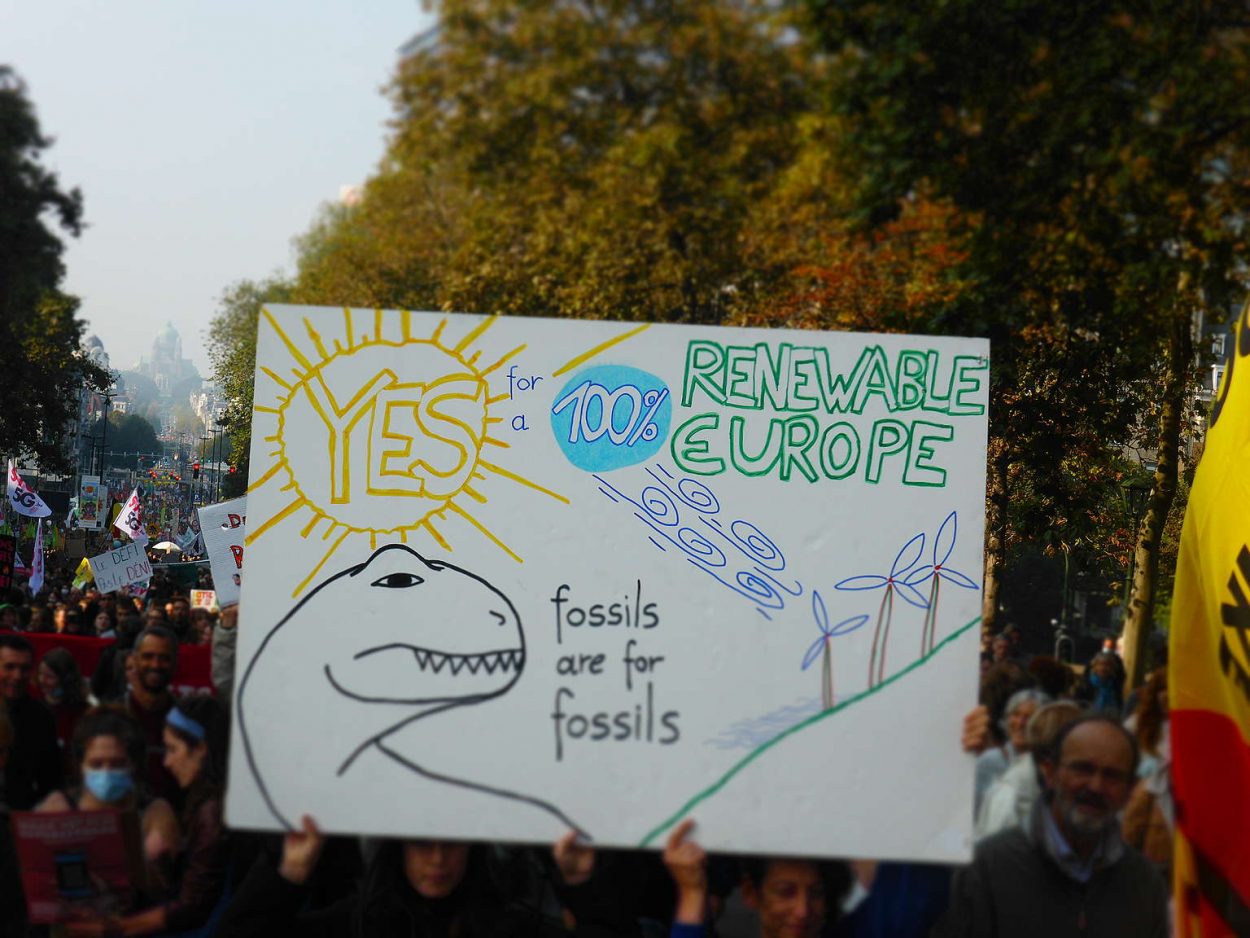 YES
for
a
100%
RENEWABLE
EUROPE
fossils
are for
fossils
5G
LE DÉFI
PAS LE DÉNI